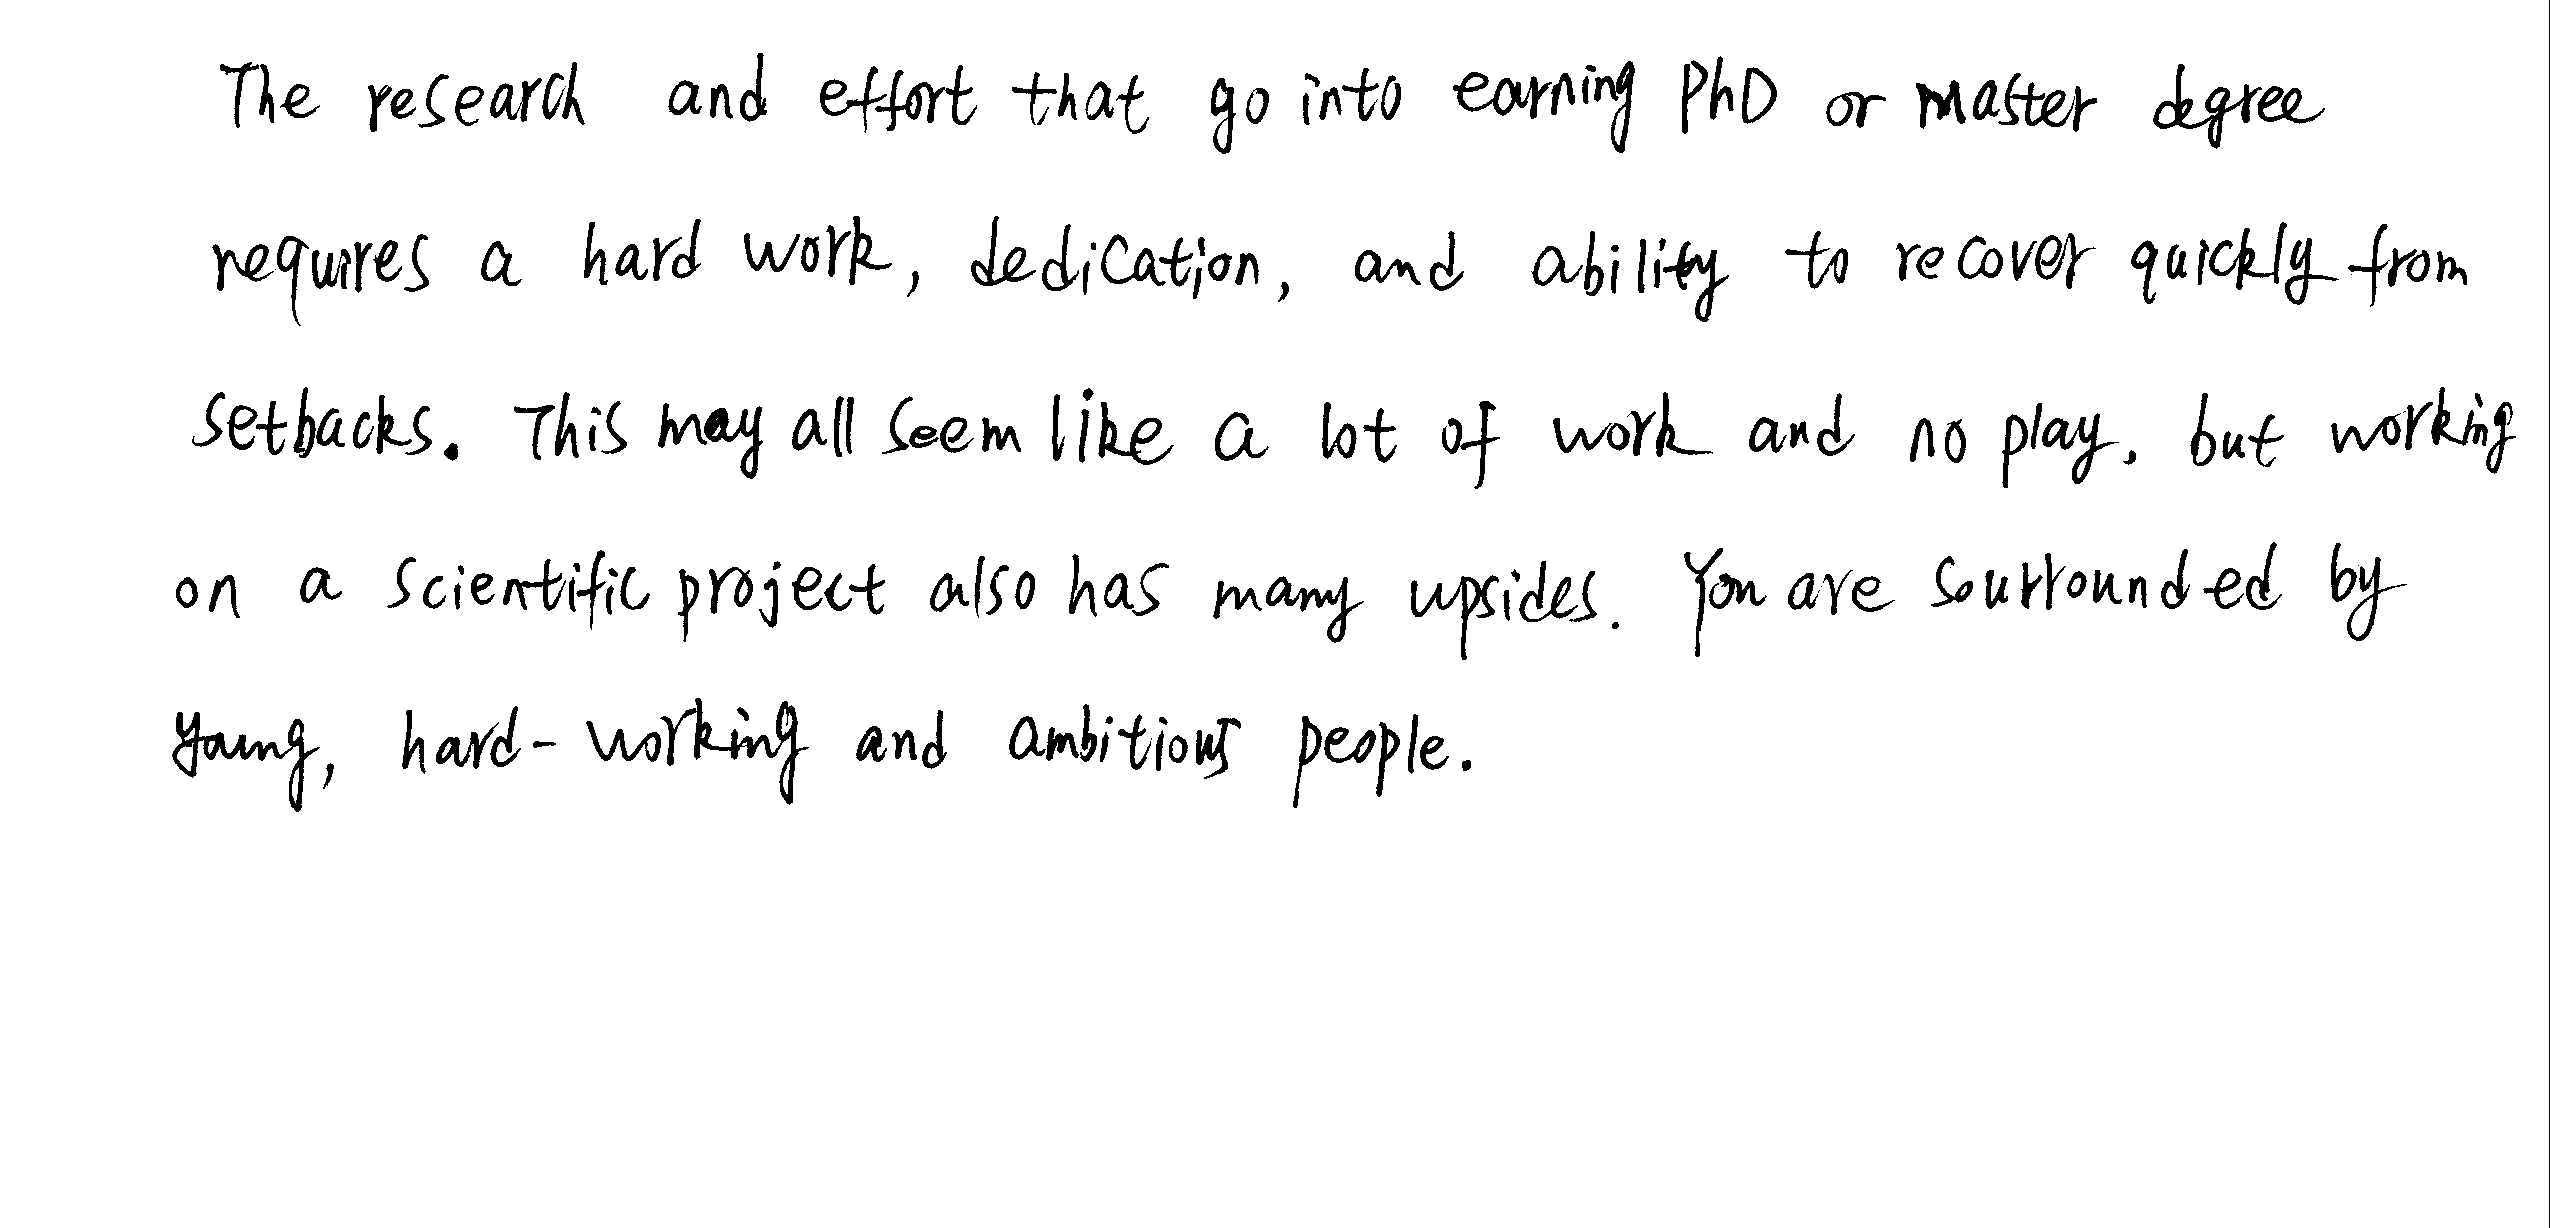 The research and effort that go into earning PhD or master degree
requires a hard work, dedication, and ability to recover quickly from
setbacks. This may all seem like a lot of work and no play, but working
on a scientific project also has many upsides. You are sourrounded by
young, hard-working and ambitious people.